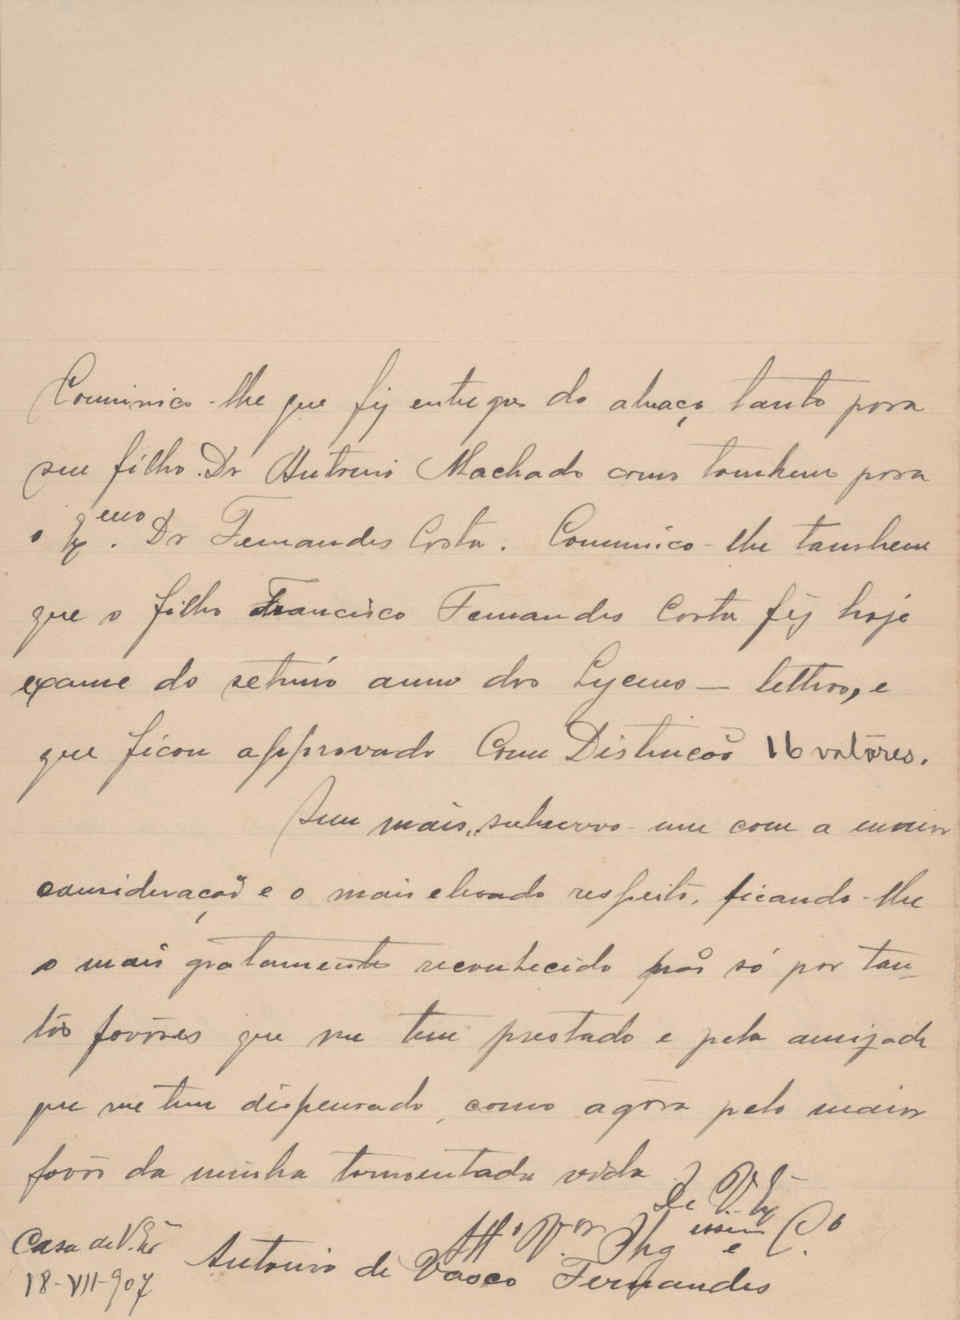 Communico-lhe que fiz entregas do almaço tanto para
seu filho Dr Antonio Machado como tambem para
o Exᵐᵒ. Dr Fernandes Costa. Communico-lhe tambem
que o filho Francisco Fernandes Costa fêz hoje
exame do setimo anno dos Lyceus — lettras, e
que ficou approvado Com Distincção 16 valôres.
Sem mais, subscrevo-me com a maior
consideração e o mais elevado respeito, ficando-lhe
o mais gratamente reconhecido não só por tan-
tos favôres que me tem prestado e pela amizade
que me tem dispensado, como agora pelo maior
favôr da minha tormentada vida
De V. Exª
Casa de V. Exª
18-VII-907
Antonio de Vasco Fernandes